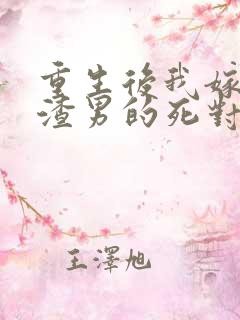 重生後我嫁
渣男的死對
王澤旭